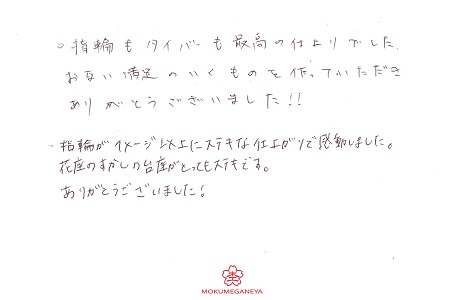 ○ 指輪もタイバーも最高の仕上りでした。
お互い満足のいくものを作っていただき
ありがとうございました!!
・指輪がイメージ以上にステキな仕上がりで感動しました。
花座のすかしの台座がとってもステキです。
ありがとうございました!
MOKUMEGANEYA